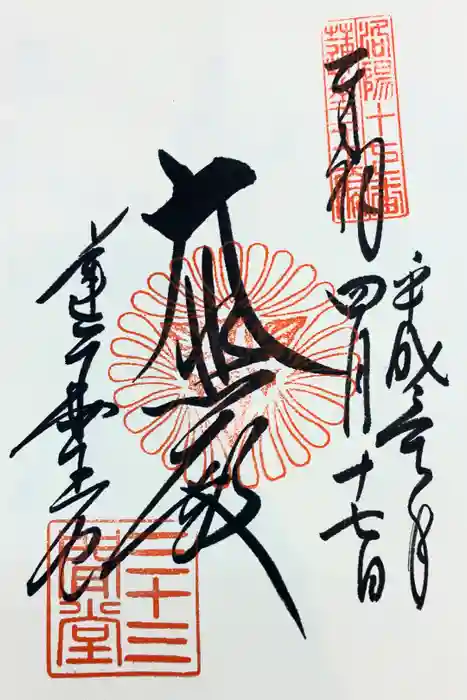 洛陽十七番
奉拝
平成
四月十七日
大悲殿
蓮華王院
三十三
間堂